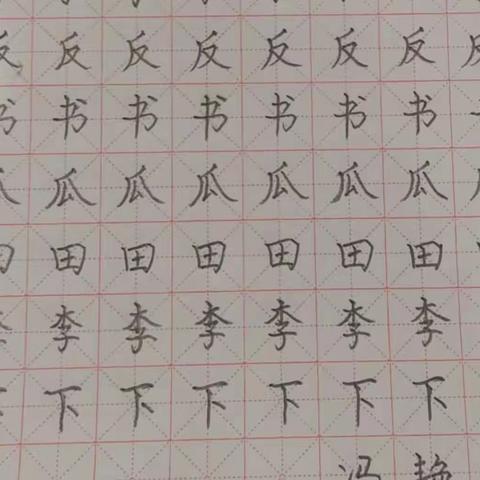 反 反 反 反 反 反 反 反
书 书 书 书 书 书 书
瓜 瓜 瓜 瓜 瓜 瓜 瓜
田 田 田 田 田 田 田
李 李 李 李 李 李
下 下 下 下 下 下
冯 艳